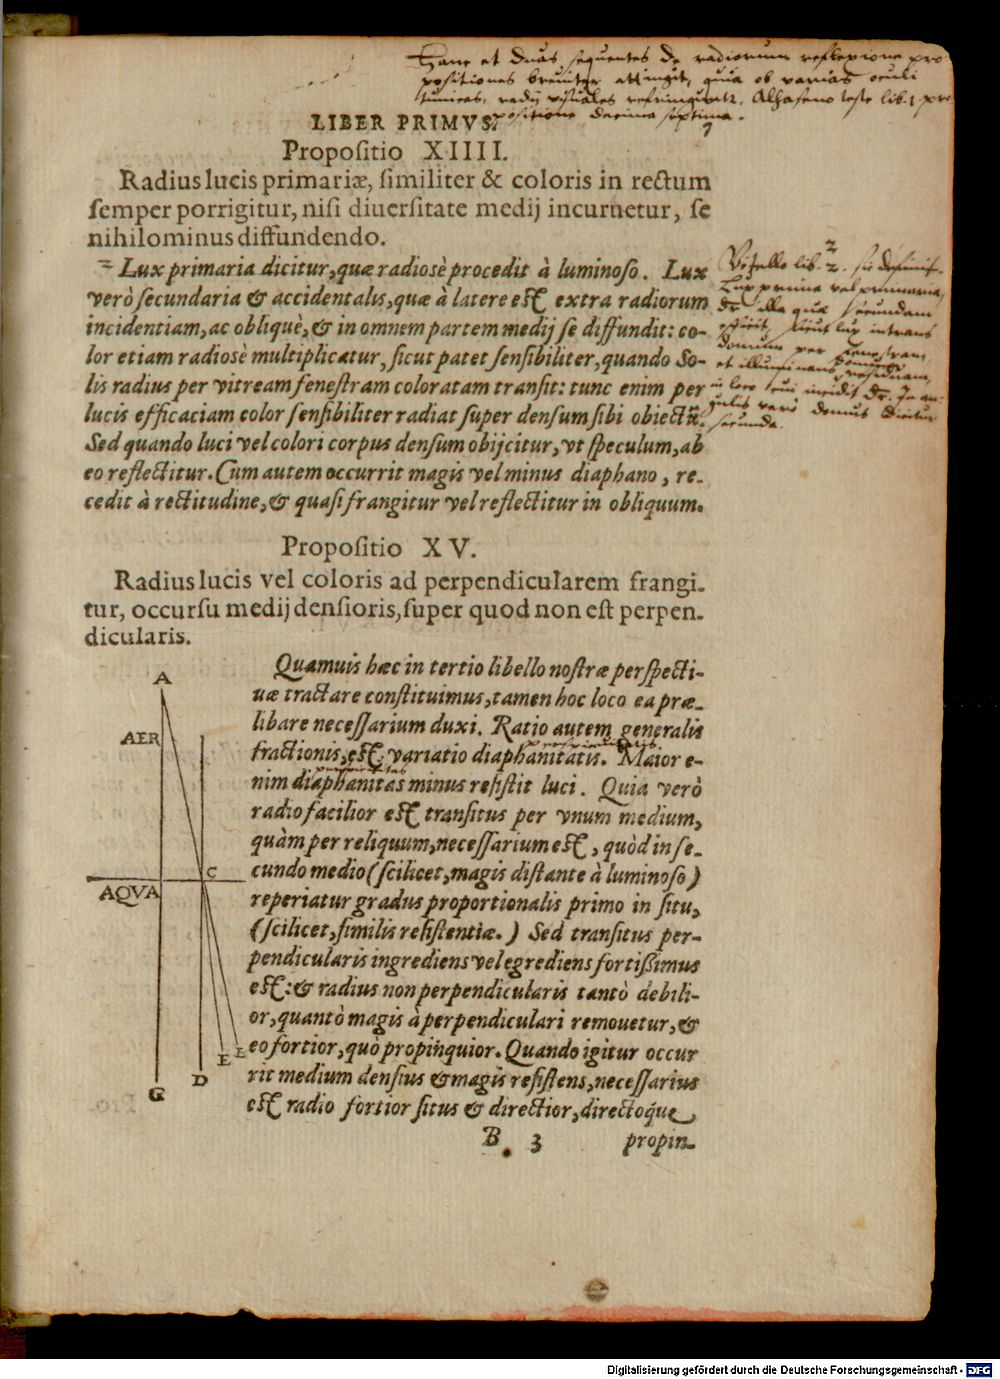 Hanc et duas sequentes de radiorum reflexione pro
positiones breuiter attingit, quia ob varias oculi
tunicas, radij visuales refringuntr. Alhaseno teste lib. 1 pro
positione decima septima.
LIBER PRIMVS.
7
Propositio XIIII.
Radius lucis primariæ, similiter & coloris in rectum
semper porrigitur, nisi diuersitate medij incuruetur, se
nihilominus diffundendo.
Lux primaria dicitur, quæ radiosè procedit à luminoso. Lux
verò secundaria & accidentalis, quæ à latere est extra radiorum
incidentiam, ac obliquè, & in omnem partem medij se diffundit: co-
lor etiam radiosè multiplicatur, sicut patet sensibiliter, quando So-
lis radius per vitream fenestram coloratam transit: tunc enim per
lucis efficaciam color sensibiliter radiat super densum sibi obiectũ.
Sed quando luci vel colori corpus densum obijcitur, vt speculum, ab
eo reflectitur. Cum autem occurrit magis vel minus diaphano, re-
cedit à rectitudine, & quasi frangitur vel reflectitur in obliquum.
Vitello lib. 2
Lux prima vel primaria,
dr illa qua secundam
efficit, sicut lux intrans
domum per fenestram
et illuminans
in loco cui incidit dr. In an-
gulis vero domus dicitur
secunda.
Propositio XV.
Radius lucis vel coloris ad perpendicularem frangi-
tur, occursu medij densioris, super quod non est perpen-
dicularis.
Quamuis hæc in tertio libello nostræ perspecti-
uæ tractare constituimus, tamen hoc loco ea præ-
libare necessarium duxi. Ratio autem generalis
fractionis, est; variatio diaphanitatis. Maior e-
nim diaphanitas minus resistit luci. Quia verò
radio facilior est transitus per vnum medium,
quàm per reliquum, necessarium est, quòd in se-
cundo medio (scilicet, magis distante à luminoso)
reperiatur gradus proportionalis primo in situ,
(scilicet, similis resistentiæ.) Sed transitus per-
pendicularis ingrediens vel egrediens fortißimus
est: & radius non perpendicularis tantò debili-
or, quantò magis à perpendiculari remouetur, &
eo fortior, quò propinquior. Quando igitur occur
rit medium densius & magis resistens, necessarius
est radio fortior situs & directior, directoq́ue
B 3 propin-
A
AER
C
AQVA
E E
D
G
Digitalisierung gefördert durch die Deutsche Forschungsgemeinschaft - DFG